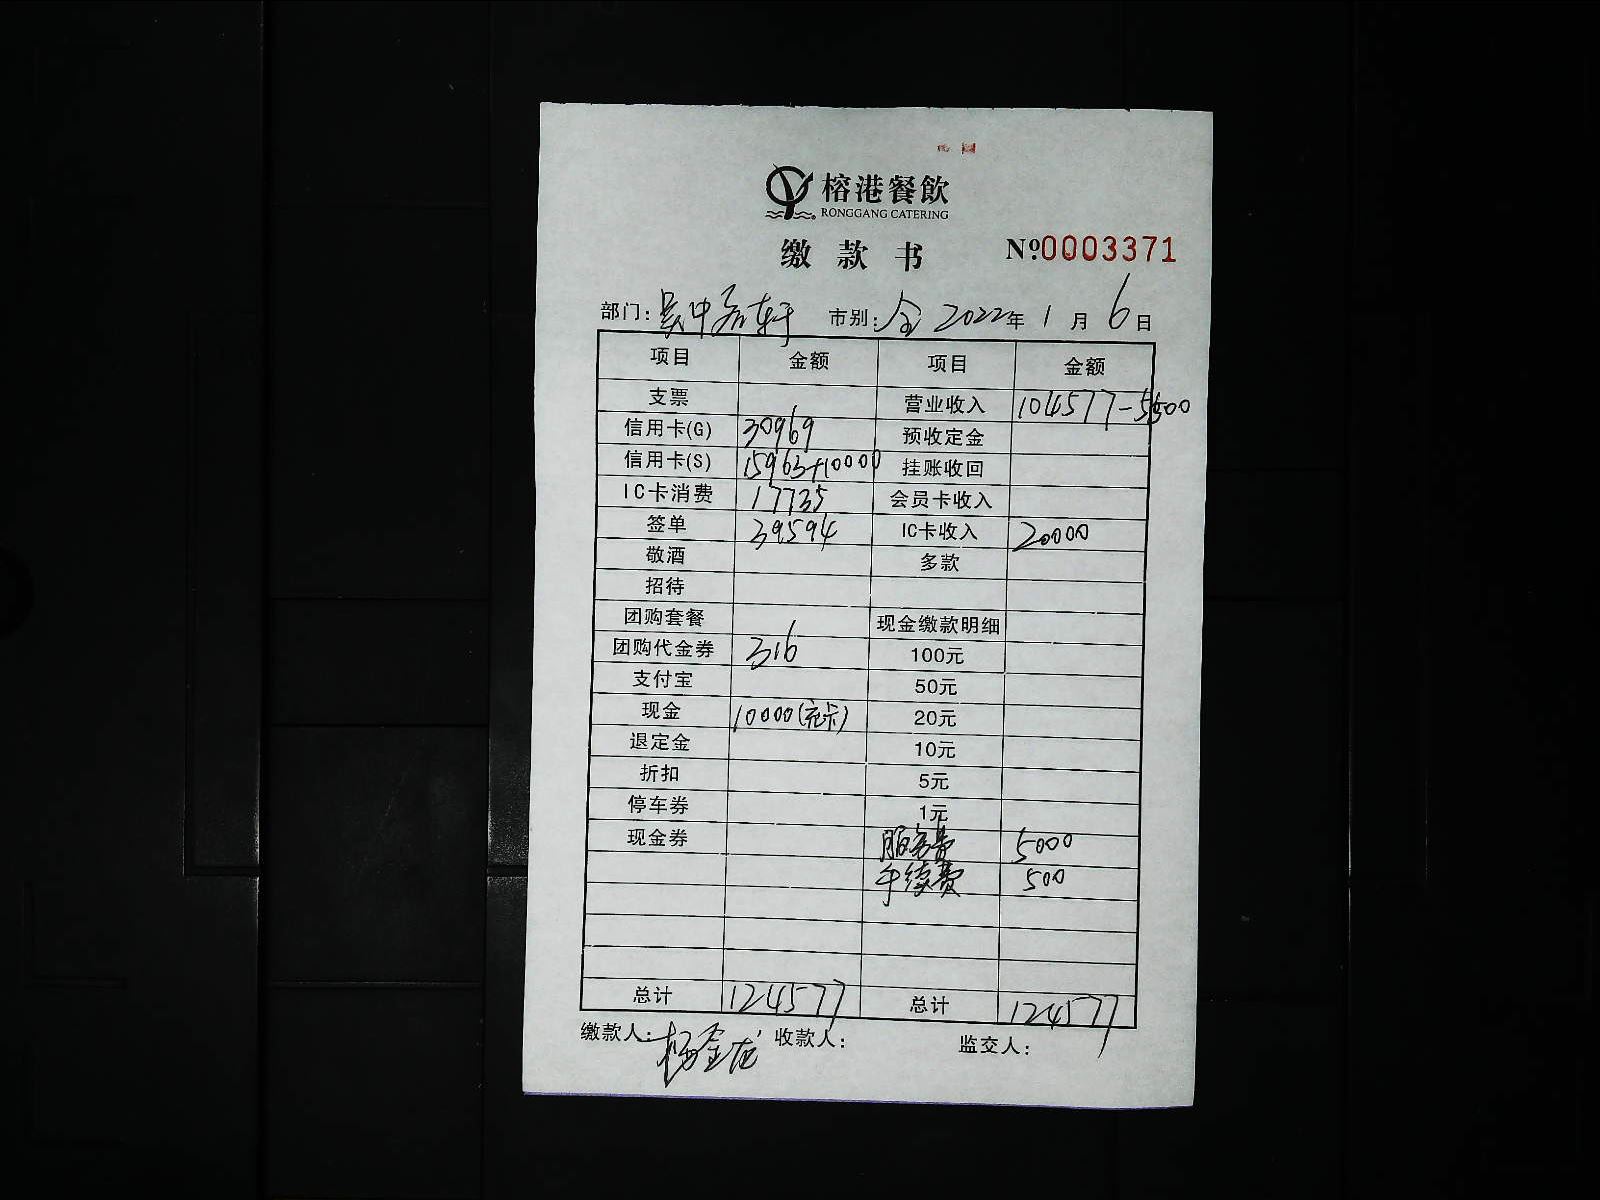 榕港餐飲
RONGGANG CATERING
缴款书 №0003371
部门: 吴中 市别: 全 2022年 1月 6日
项目 金额 项目 金额
支票 营业收入 104577-5500
信用卡(G) 30969 预收定金
信用卡(S) 15963+10000 挂账收回
IC卡消费 17735 会员卡收入
签单 39594 IC卡收入 20000
敬酒 多款
招待
团购套餐 现金缴款明细
团购代金券 316 100元
支付宝 50元
现金 10000(充卡) 20元
退定金 10元
折扣 5元
停车券 1元
现金券 服务费 5000
手续费 500
总计 124577 总计 124577
缴款人: 杨金龙 收款人: 监交人: